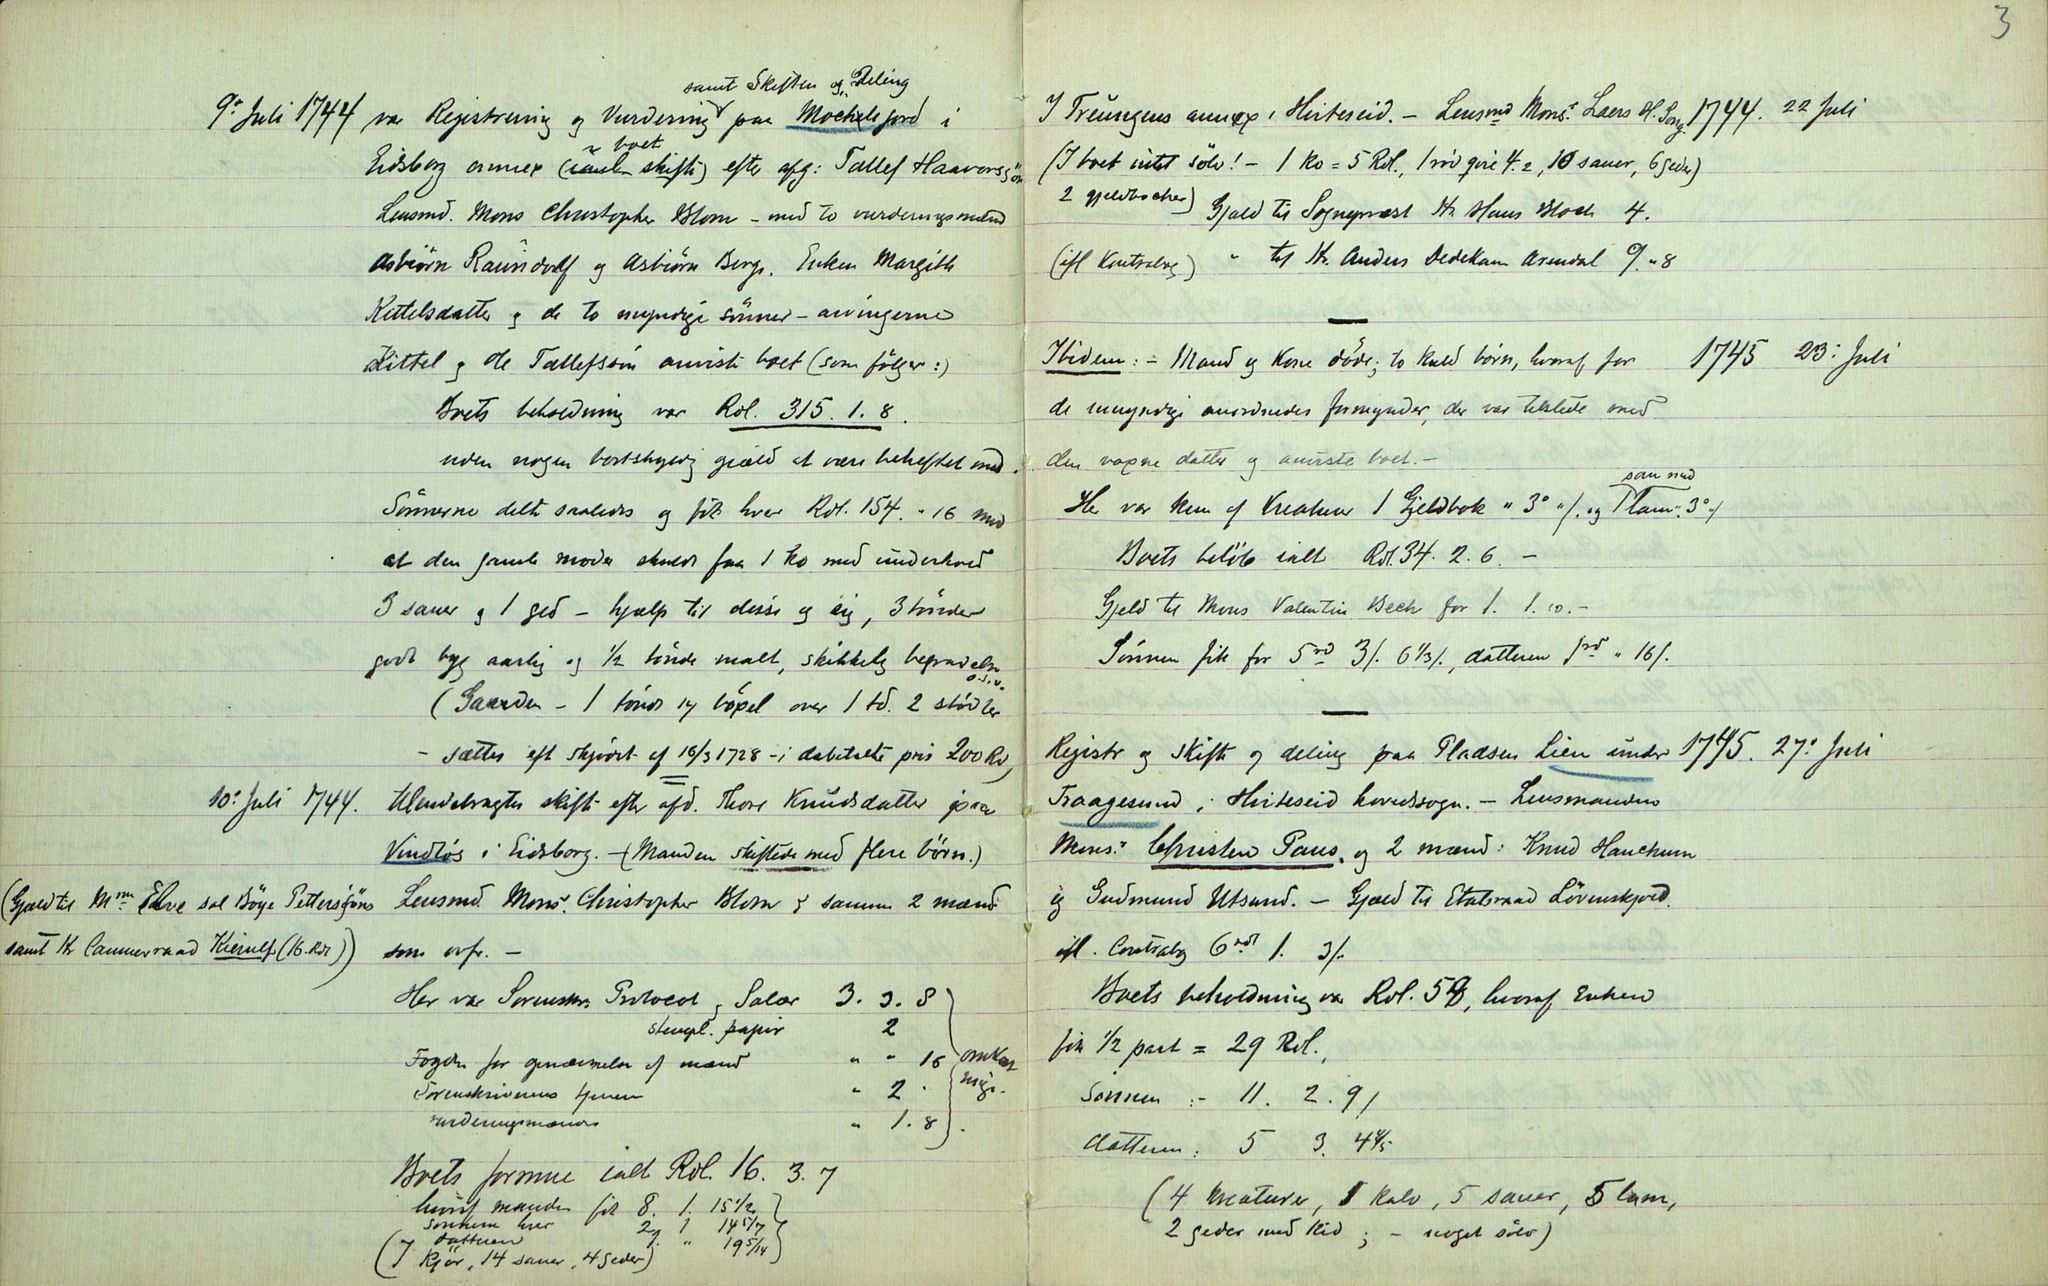 samt Skiften og Deling
9de Juli 1744 var Registrering og Vurdering paa Mochelegord i
boet
Eidsborg annex (skifte) efter afg: Tallef Haavorssön
Lensmd. Mons Christopher Blom – med to vurderingsmænd
Asbiörn Raundorf og Asbiörn Berge. Enken Margith
Kittelsdatter og de to myndige sönner – arvingerne
Kittel og Ole Tallefssön anviste boet (som fölger:)
Boets beholdning var Rdl. 315. 1. 8.
uden nogen bortskyldig giæld at være beheftet med.
Sönnerne delte saaledes og fik hver Rdl. 154. " 16 mod
at den gamle moder skulde faa 1 ko med underhold
3 sauer og 1 ged – hjælp til disse og sig, 3 tönder
godt byg aarlig og 1/2 tönde malt, skikkelig begravelse
o.s.v.
(Gaarden – 1 tönde og böxel over 1 td. 2 s
– sættes eft skjöde af 16/3 1728 – i dabetalte pris 200 Rd)
10de Juli 1744. Tilendebragtes skifte efter afd. Thore Knudsdatter paa
Vindlös i Eidsborg. – (Manden skiftede med flere börn.)
(Gjæld til Mme Elve sal Böye Pettersöns Lensmd. Mons. Christopher Blom og samme 2 mænd
samt Hr Cammerraad Kierulf (16. Rdl)) som ovfr. –
Her var Sorenskr. Protocol og Salær 3. 3. 8
stempl. papir 2
Fogden for opnævnelse af mænd " " 16 omkost
Sorenskriverens tjener " 2 " ninger.
vurderingsmænd " 1. 8
Boets formue ialt Rdl. 16. 3. 7
hvoraf manden fik 8. 1. 15 1/2
sönnerne hver 2. 1 14 5/7
datteren 1. " 19 5/14
(7 kjör, 14 sauer, 4 geder)
3
I Treungens annex i Hviteseid. – Lensmd Monsr. Laers H. Song. 1744. 22 Juli
(I boet intet sölv! – 1 ko = 5 Rdl., 1 dö qvie 4. 2, 10 sauer, 6 geder)
2 gjeldbocker) Gjæld til Sognepræst Hr Hans Bloch 4.
(ifl Kontrabog) " til Hr. Anders Dedekam Arendal 9. " 8
Ibidem: – Mand og Kone döde; to kuld börn, hvoraf for 1745 23: Juli
de umyndige anordnedes formynder, der var tilstede med
den voxne datter og anviste boet. –
sau med
Her var kun af Kreaturer 1 Gjeldbok " 3 " /. og 1 lam ". 3 "/
Boets belöb ialt Rdl. 34. 2. 6. –
Gjeld til Mons Valentin Bech for 1. 1. 10. –
Sönnen fik for 5 rd 3/. 6 1/3/., datteren rd " 16/.
Registr og skifte og deling paa Pladsen Lien under 1745. 27de Juli
Traagesund i Hviteseid hovedsogn. – Lensmanden
Mons.r Christen Paus, og 2 mænd: Knud Hauchum
og Gudmund Utsund. – Gjæld til Etatsraad Lövenskjold.
ifl. Contrabog 6 rdl 1. 3/.
Boets beholdning var Rdl. 58, hvoraf Enken
fik 1/2 part = 29 Rdl.,
Sönnen :– 11. 2. 9/
datteren: 5 3. 4 4/5
(4 kreaturer, 1 kalv, 5 sauer, 5 lam,
2 geder med kid; – noget sölv)